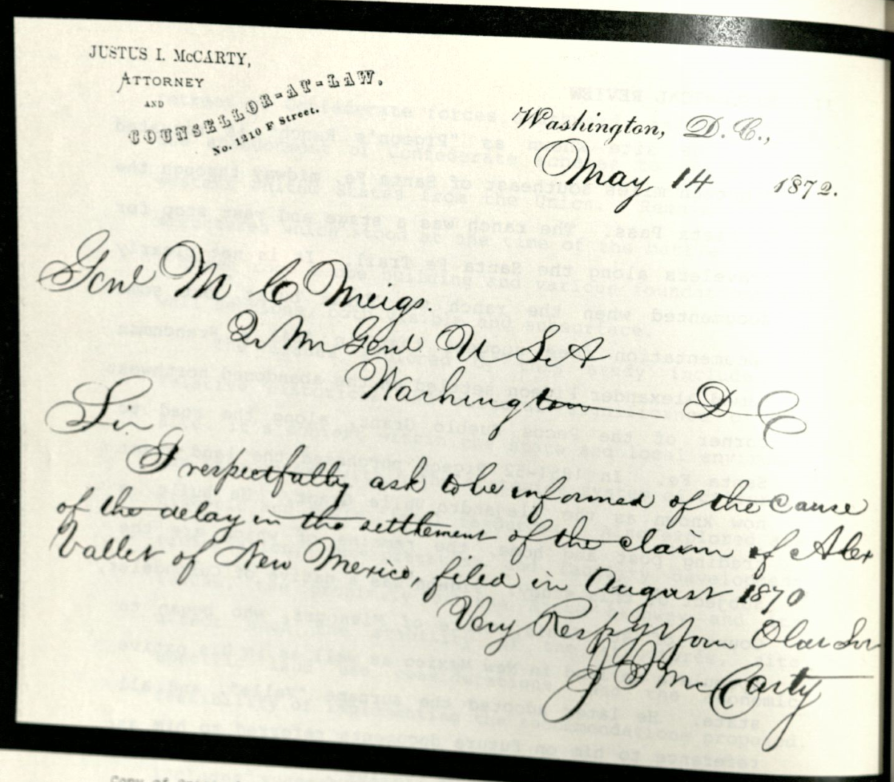 JUSTUS I. McCARTY,
ATTORNEY
AND
COUNSELLOR-AT-LAW.
No. 1210 F Street.
Washington, D. C.,
May 14 1872.
Genl M C Meigs.
Qr Mr Genl U S. A
Washington D C
Sir
I respectfully ask to be informed of the cause
of the delay in the settlement of the claim of Alex
Vallet of New Mexico, filed in August 1870
Very Respy Your Obdt Svt
J I McCarty
Copy of